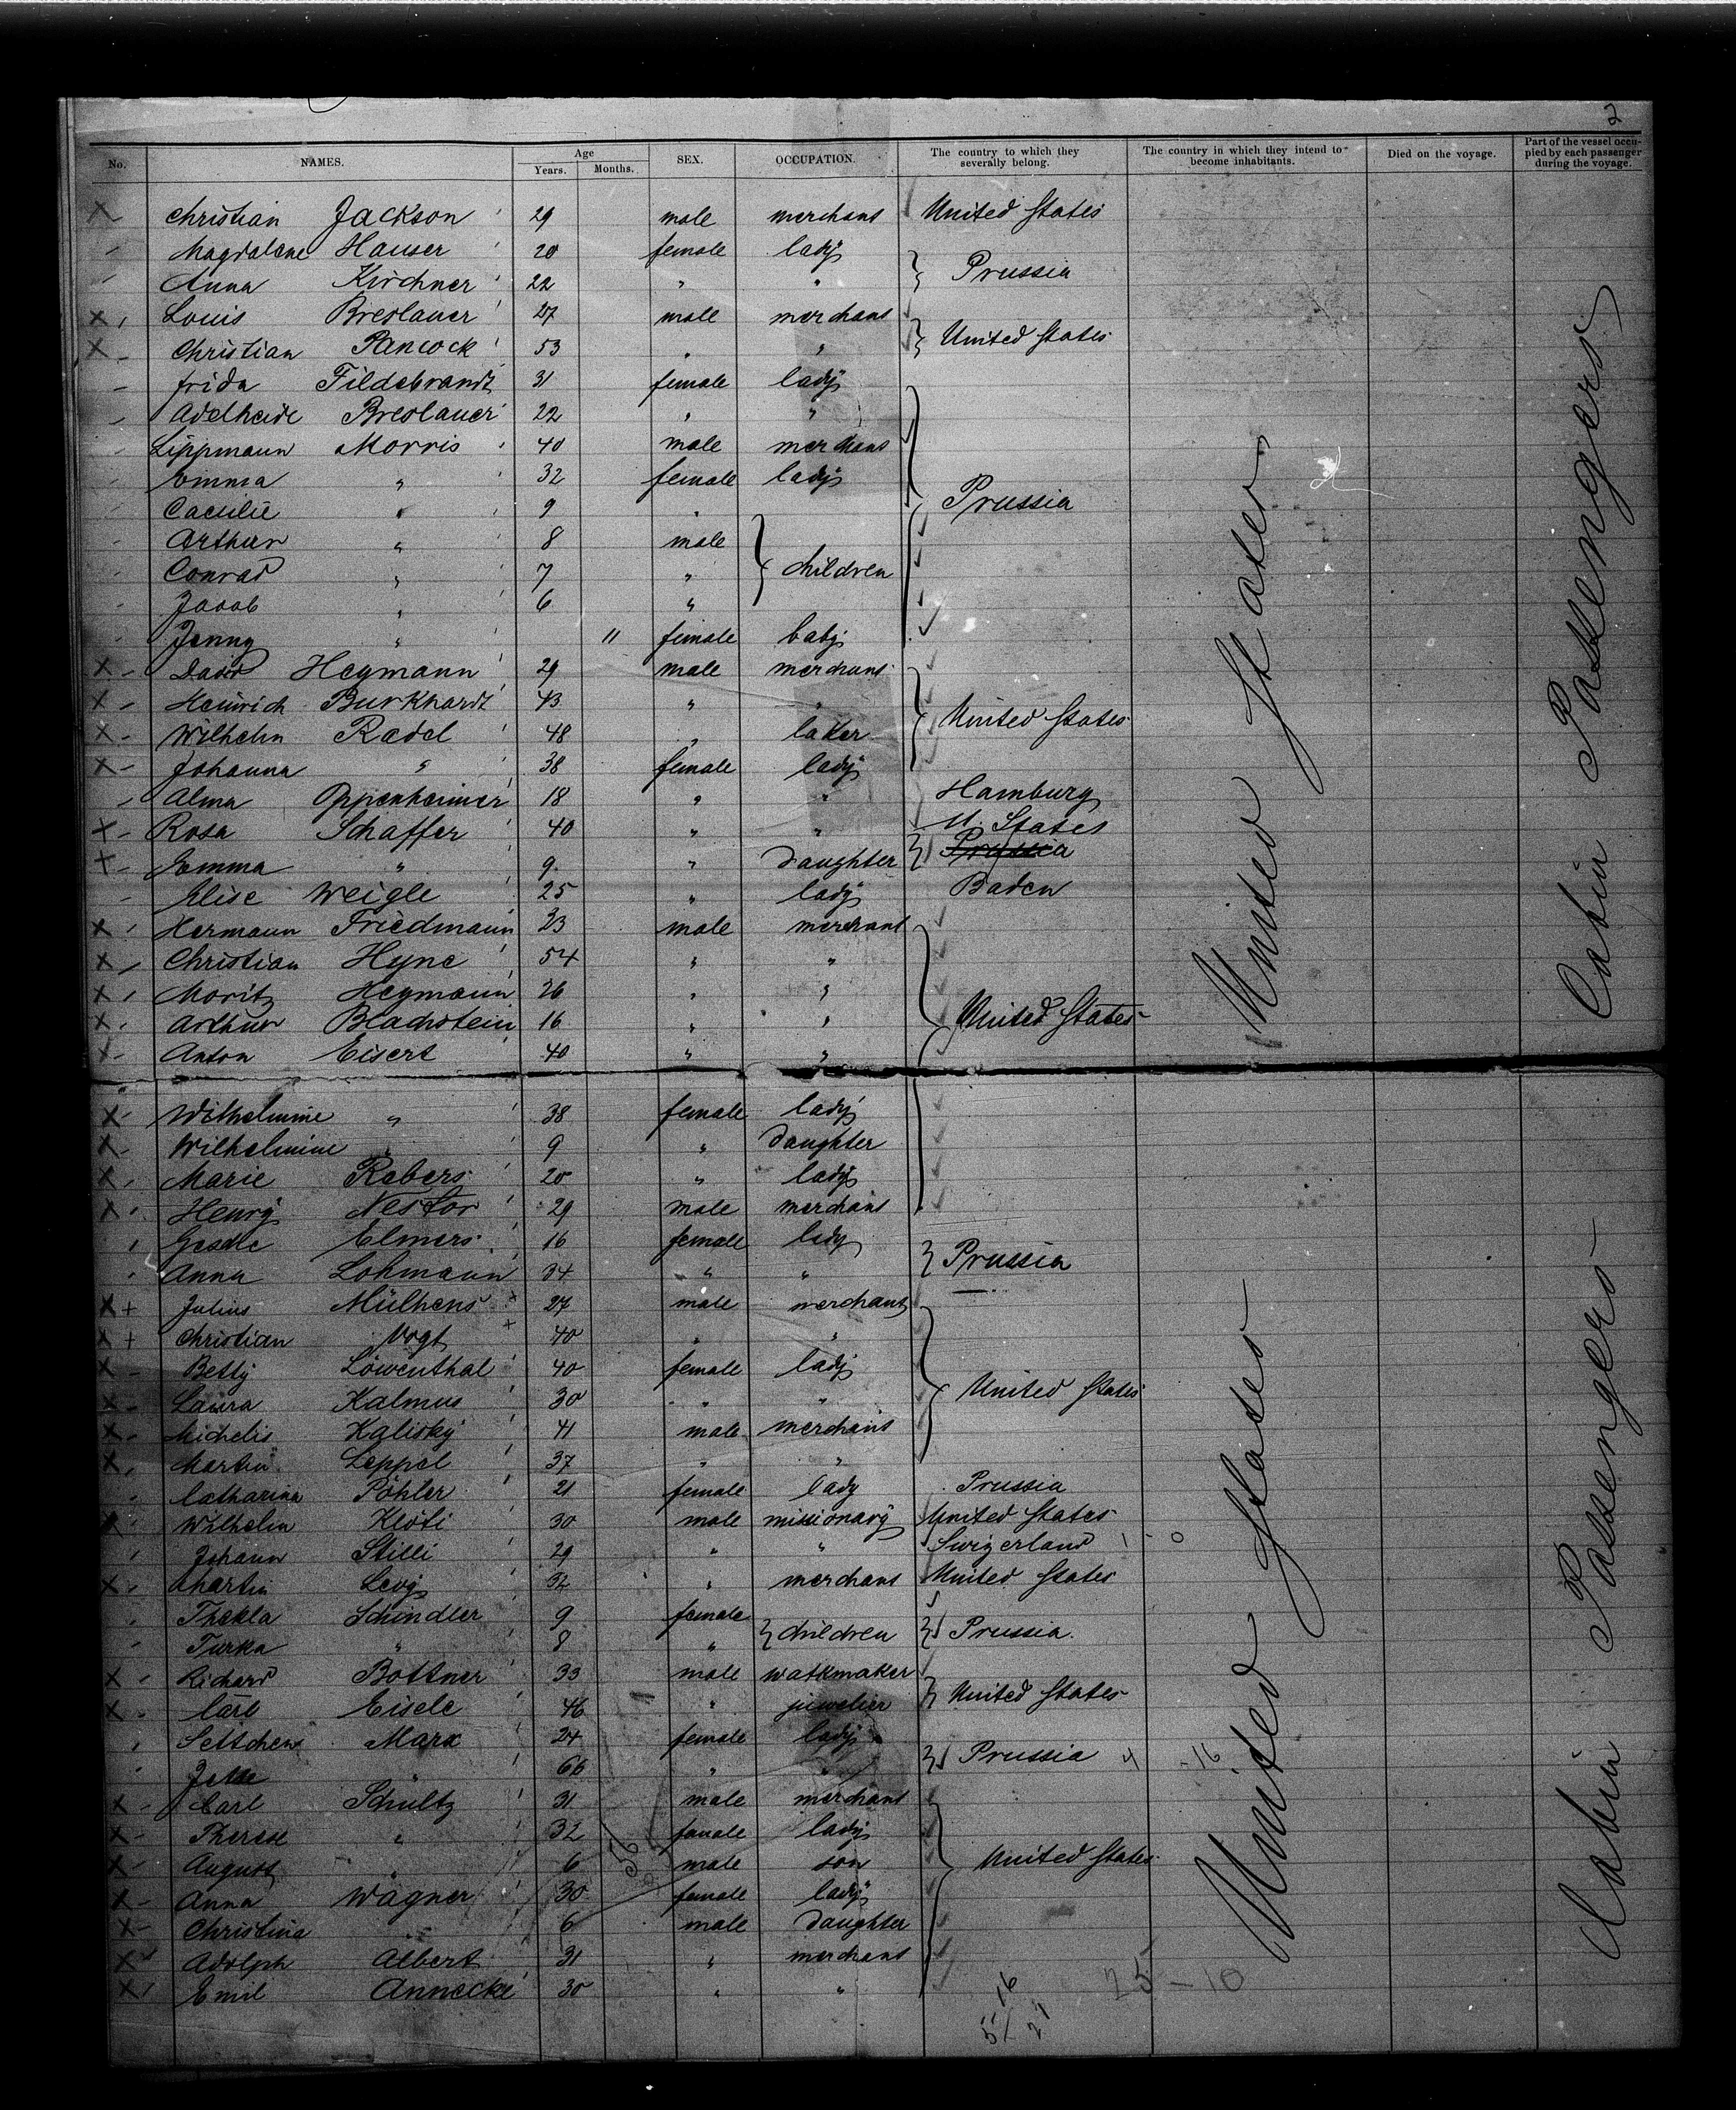 2
No. NAMES. Age Years. Months. SEX. OCCUPATION. The country to which they severally belong. The country in which they intend to become inhabitants. Died on the voyage. Part of the vessel occupied by each passenger during the voyage.
X Christian Jackson 29 male merchant United States
Magdalene Hauser 20 female lady
Anna Kirchner 22 " " } Prussia
X Louis Breslauer 27 male merchant
X Christian Pancock 53 " " } United States
Frida Fildebrandt 31 female lady
Adelheide Breslauer 22 " "
Lippmann Morris 40 male merchant
Emma " 32 female lady
Caecilie " 9 " Prussia
Arthur " 8 male
Conrad " 7 " } children
Jacob " 6 "
Jenny " 11 female baby
X David Heymann 29 male merchant
X Heinrich Burkhardt 43 " "
X Wilhelm Radel 48 " baker United States
X Johanna " 38 female lady
Alma Oppenheimer 18 " " Hamburg
X Rosa Schaffer 40 " " U. States
X Emma " 9 " daughter Prussia
Elise Weigle 25 " lady Baden
X Hermann Friedmann 23 male merchant
X Christian Hyne 54 " "
X Moritz Heymann 26 " "
X Arthur Blachstein 16 " " United States
X Anton Eisert 40 " "
X Wilhelmine " 38 female lady
X Wilhelmine " 9 " daughter
X Marie Rabers 20 " lady
X Henry Nestor 29 male merchant
Gesche Elmers 16 female lady
Anna Lohmann 34 " " } Prussia
X + Julius Mülhens 27 male merchant
X + Christian Vogt 40 " "
X Betty Löwenthal 40 female lady
X Laura Kalmus 30 " " United States
X Michelis Kalisky 41 male merchant
X Martin Leppel 37 " "
Catharina Pöhler 21 female lady Prussia
X Wilhelm Klöti 30 male missionary United States
Johann Stilli 29 " " Swizerland 1 - 0
X Martin Levy 32 " merchant United States
Thekla Schindler 9 female
Turka " 8 " } children Prussia
X Richard Bottner 33 male watkmaker
X Carl Eisele 46 " juwelier } United States
Settchen Marx 24 female lady
Jette 66 " " } Prussia 4 - 16
X Carl Schultz 31 male merchant
X Therese " 32 female lady
X August " 6 male son United States
X Anna Wagner 30 female lady
X Christina " 6 male daughter
X Adolph Albert 31 " merchant
X Emil Annecke 30 " "
United States
United States
Cabin Passengers
Cabin Passengers
56
25 - 10
16
51 21